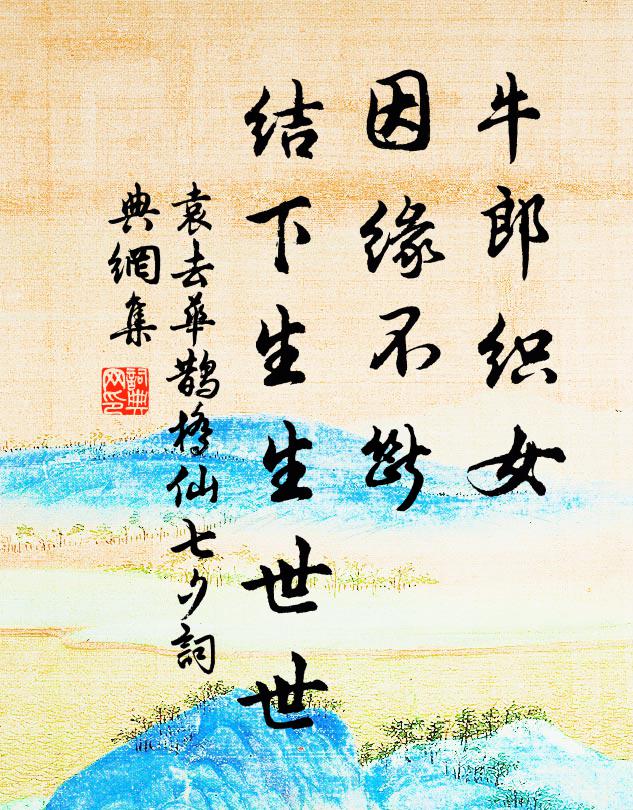 牛郎织女
因緣不断
结下生生世世
袁去華鵲橋仙七夕詞
典網集
詞典
网印